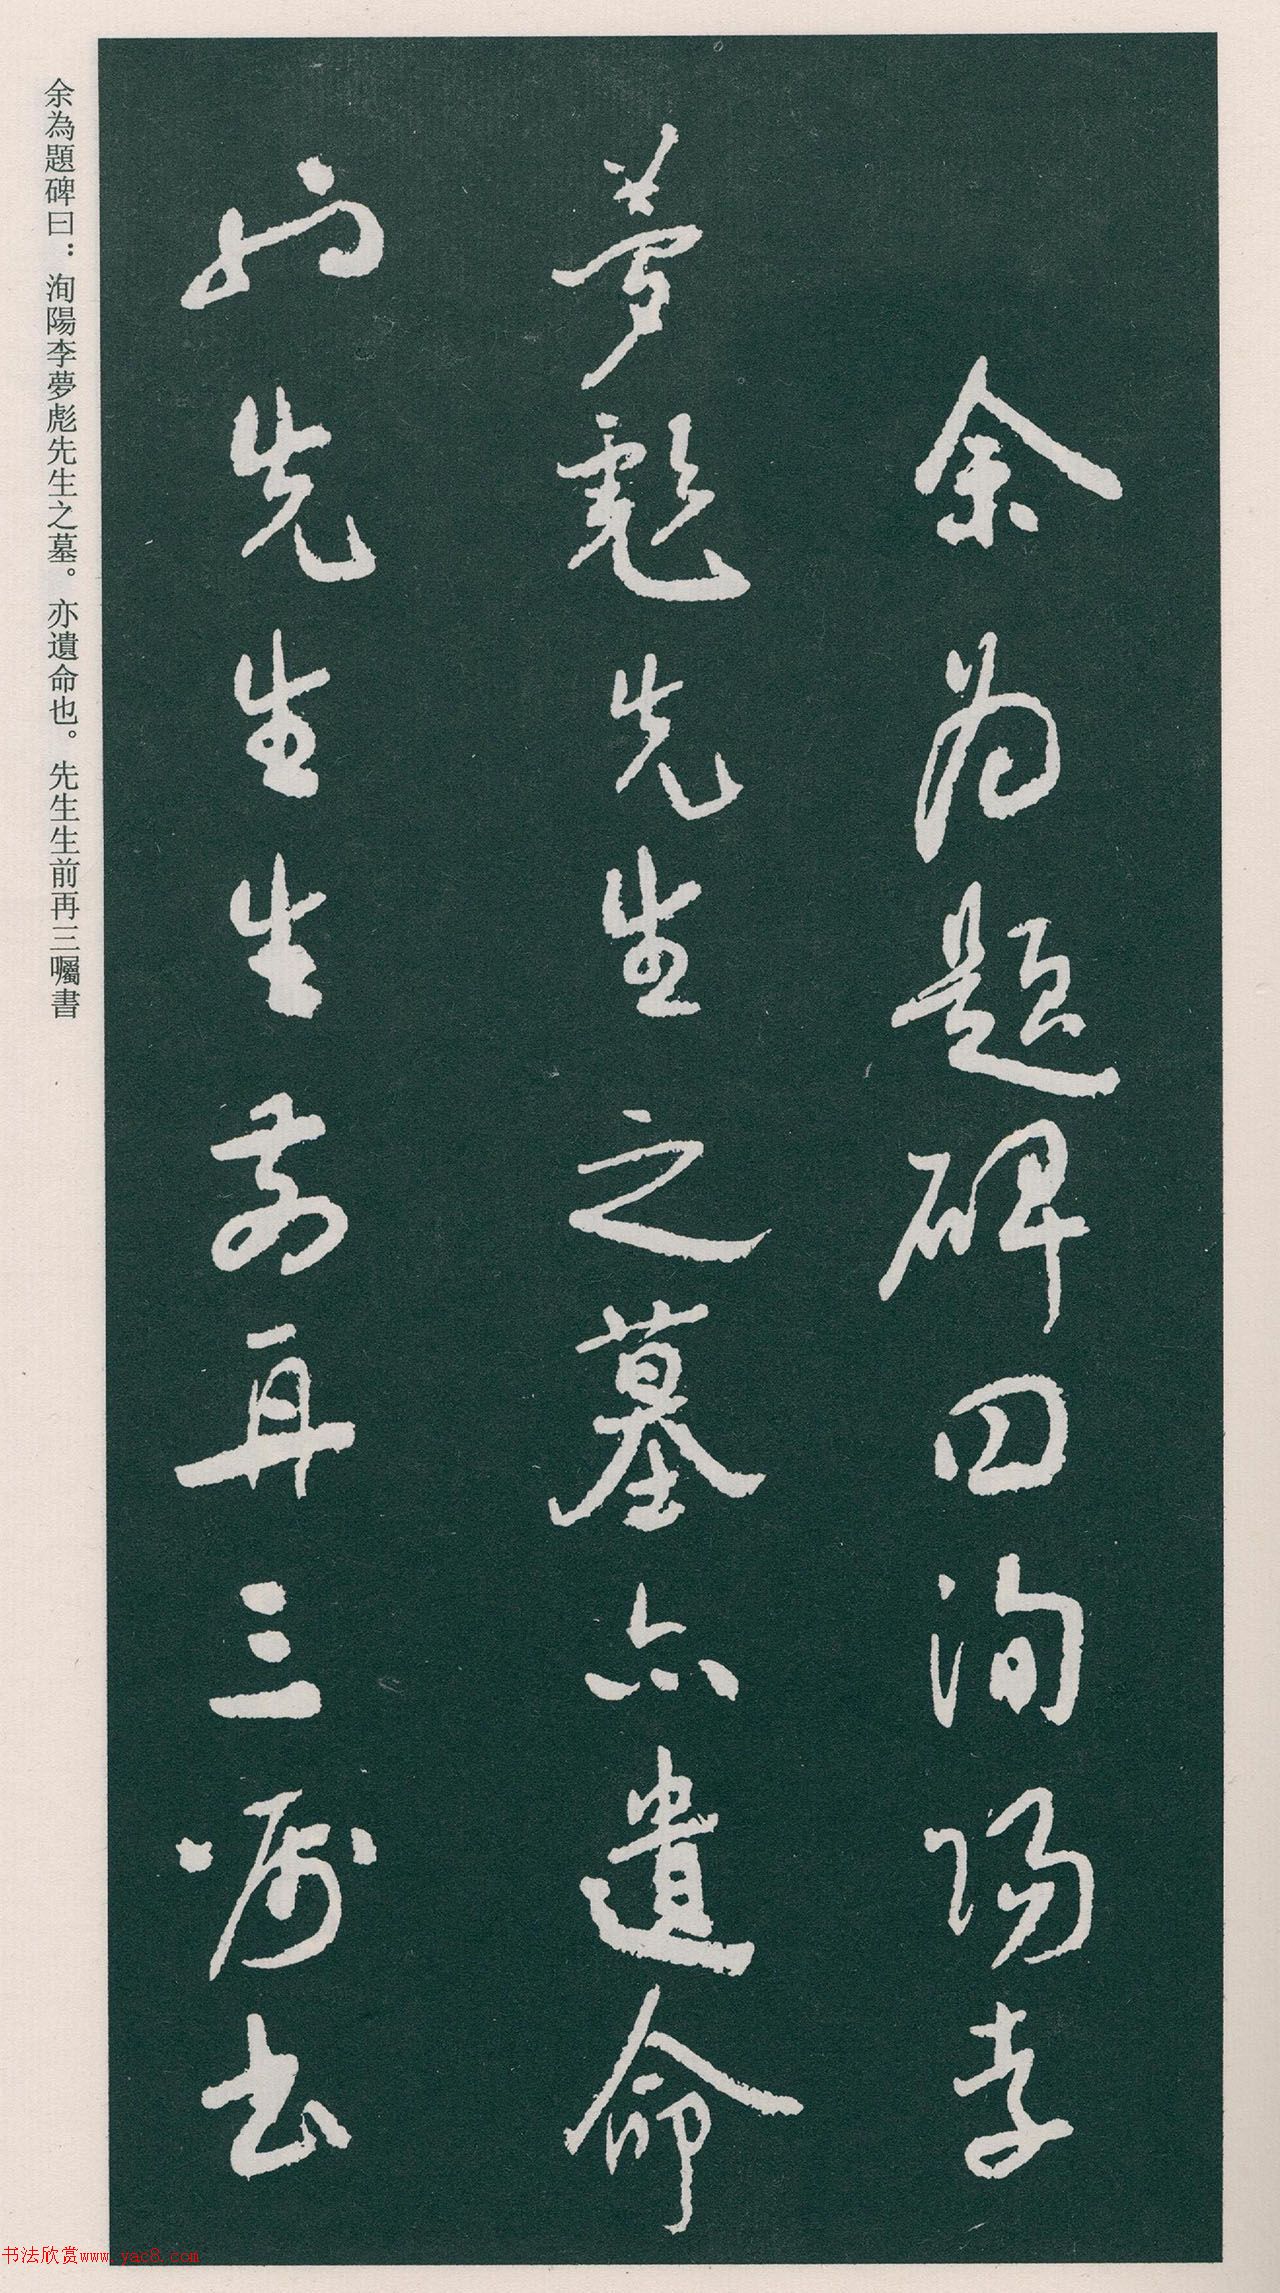 余為題碑曰洵陽李
夢彪先生之墓亦遺命
也先生生前再三囑書
余為題碑曰：洵陽李夢彪先生之墓。亦遺命也。先生生前再三囑書
书法欣赏www.yac8.com